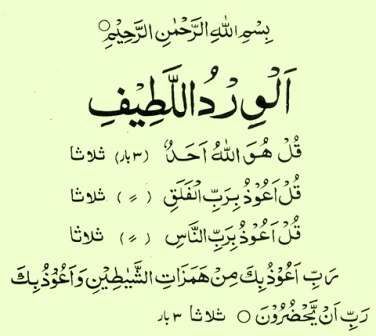 بِسْمِ اللهِ الرَّحْمٰنِ الرَّحِيْمِ○
اَلْوِرْدُ اللَّطِيْفِ
قُلْ هُوَ اللهُ اَحَدٌ (۳ بار) ثلاثا
قُلْ اَعُوْذُ بِرَبِّ الْفَلَقِ (〃) ثلاثا
قُلْ اَعُوْذُ بِرَبِّ النَّاسِ (〃) ثلاثا
رَبِّ اَعُوْذُ بِكَ مِنْ هَمَزَاتِ الشَّيٰطِيْنِ وَاَعُوْذُ بِكَ
رَبِّ اَنْ يَّحْضُرُوْنَ ○ ثلاثا ۳ بار